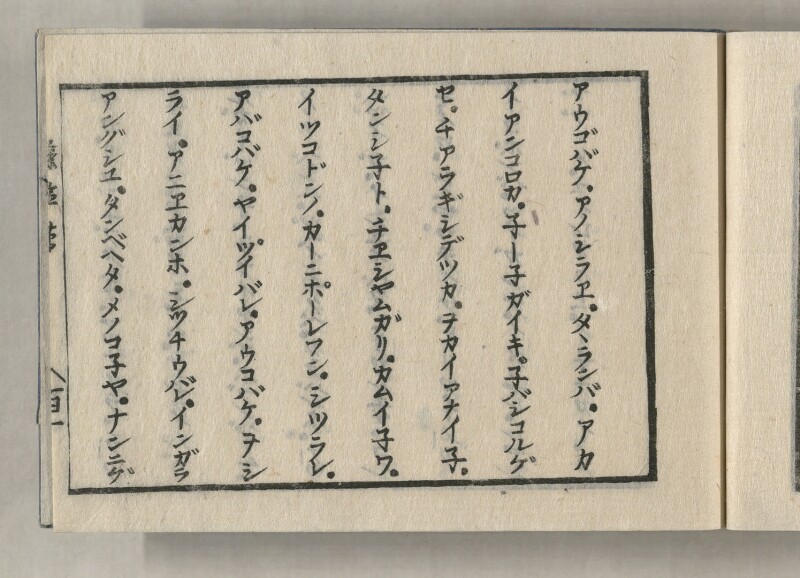 アウゴバケ。アノシラヱ。タヽランバ。アカ
イアンコロカ。子ー子ガイキ。子バシコルゲ
セ。チアラギシデツカ。ヲカイアナイ子。
タンシ子ト。チヱシヤムガリ。カムイ子ワ。
イツコドンノ。カーニポーレフン。シツラレ。
アバコバケ。ヤイツイバレ。アウコバケ。ヲシ
ライ。アニヱカンホ。シツチウバレ。インガラ
アングシヱ。タンベヘタ。メノコ子ヤ。ナンニゲ